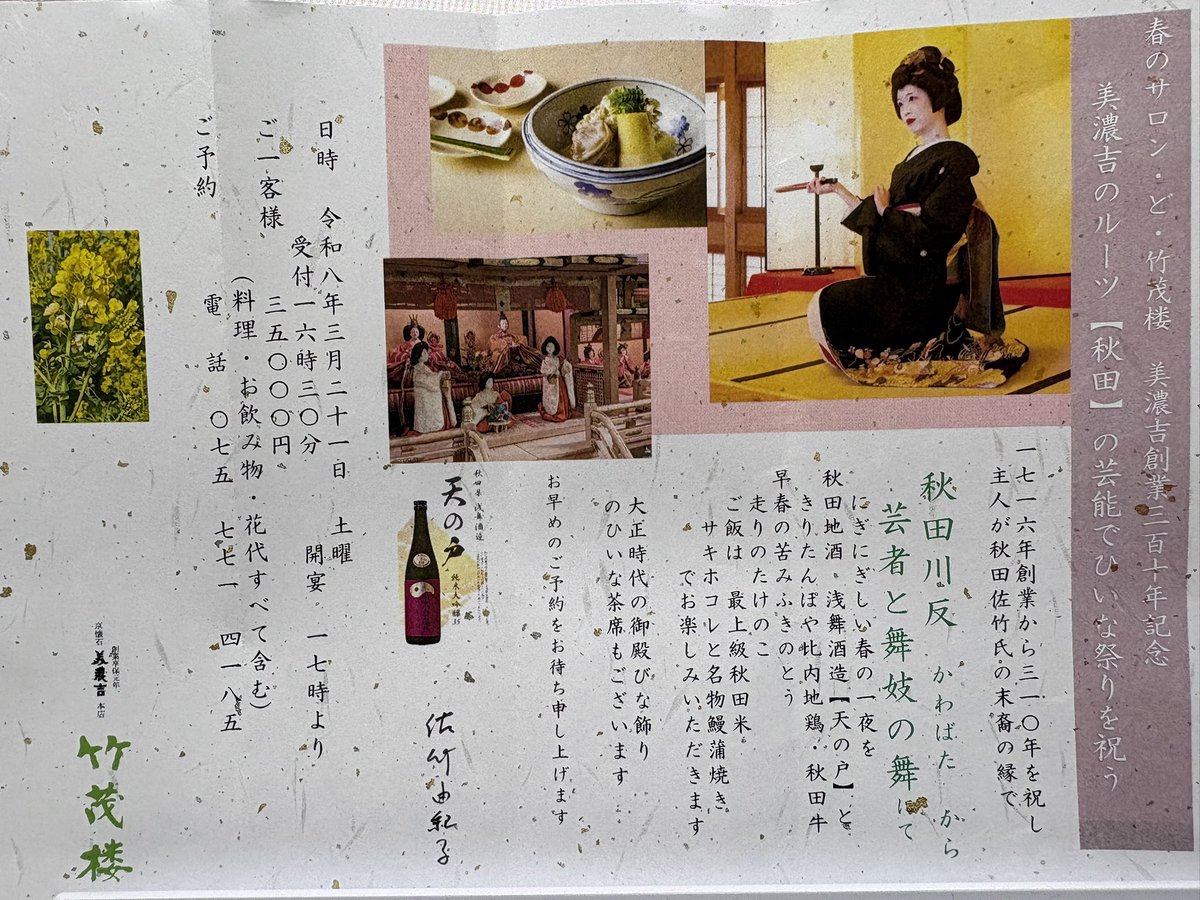 春のサロン・ど・竹茂楼　美濃吉創業三百十年記念
美濃吉のルーツ【秋田】の芸能でひいな祭りを祝う
一七一六年創業から三一〇年を祝し
主人が秋田佐竹氏の末裔の縁で
秋田川反　かわばた　から
芸者と舞妓の舞にて
にぎにぎしい春の一夜を
秋田地酒　浅舞酒造【天の戸】と
きりたんぽや比内地鶏・秋田牛
走りのたけのこ
早春の苦みふきのとう
ご飯は　最上級秋田米
サキホコレと名物鰻蒲焼き
でお楽しみいただきます
大正時代の御殿びな飾り
のひいな茶席もございます
お早めのご予約をお待ち申し上げます
秋田県 浅舞酒造
天の戸
純米大吟醸35
佐竹由紀子
日時　令和八年三月二十一日　土曜
受付一六時三〇分　開宴　一七時より
ご一客様　三五〇〇〇円
（料理・お飲み物・花代すべて含む）
ご予約　電話　〇七五　七七一　四一八五
創業享保元年
京懐石 美濃吉 本店
竹茂楼